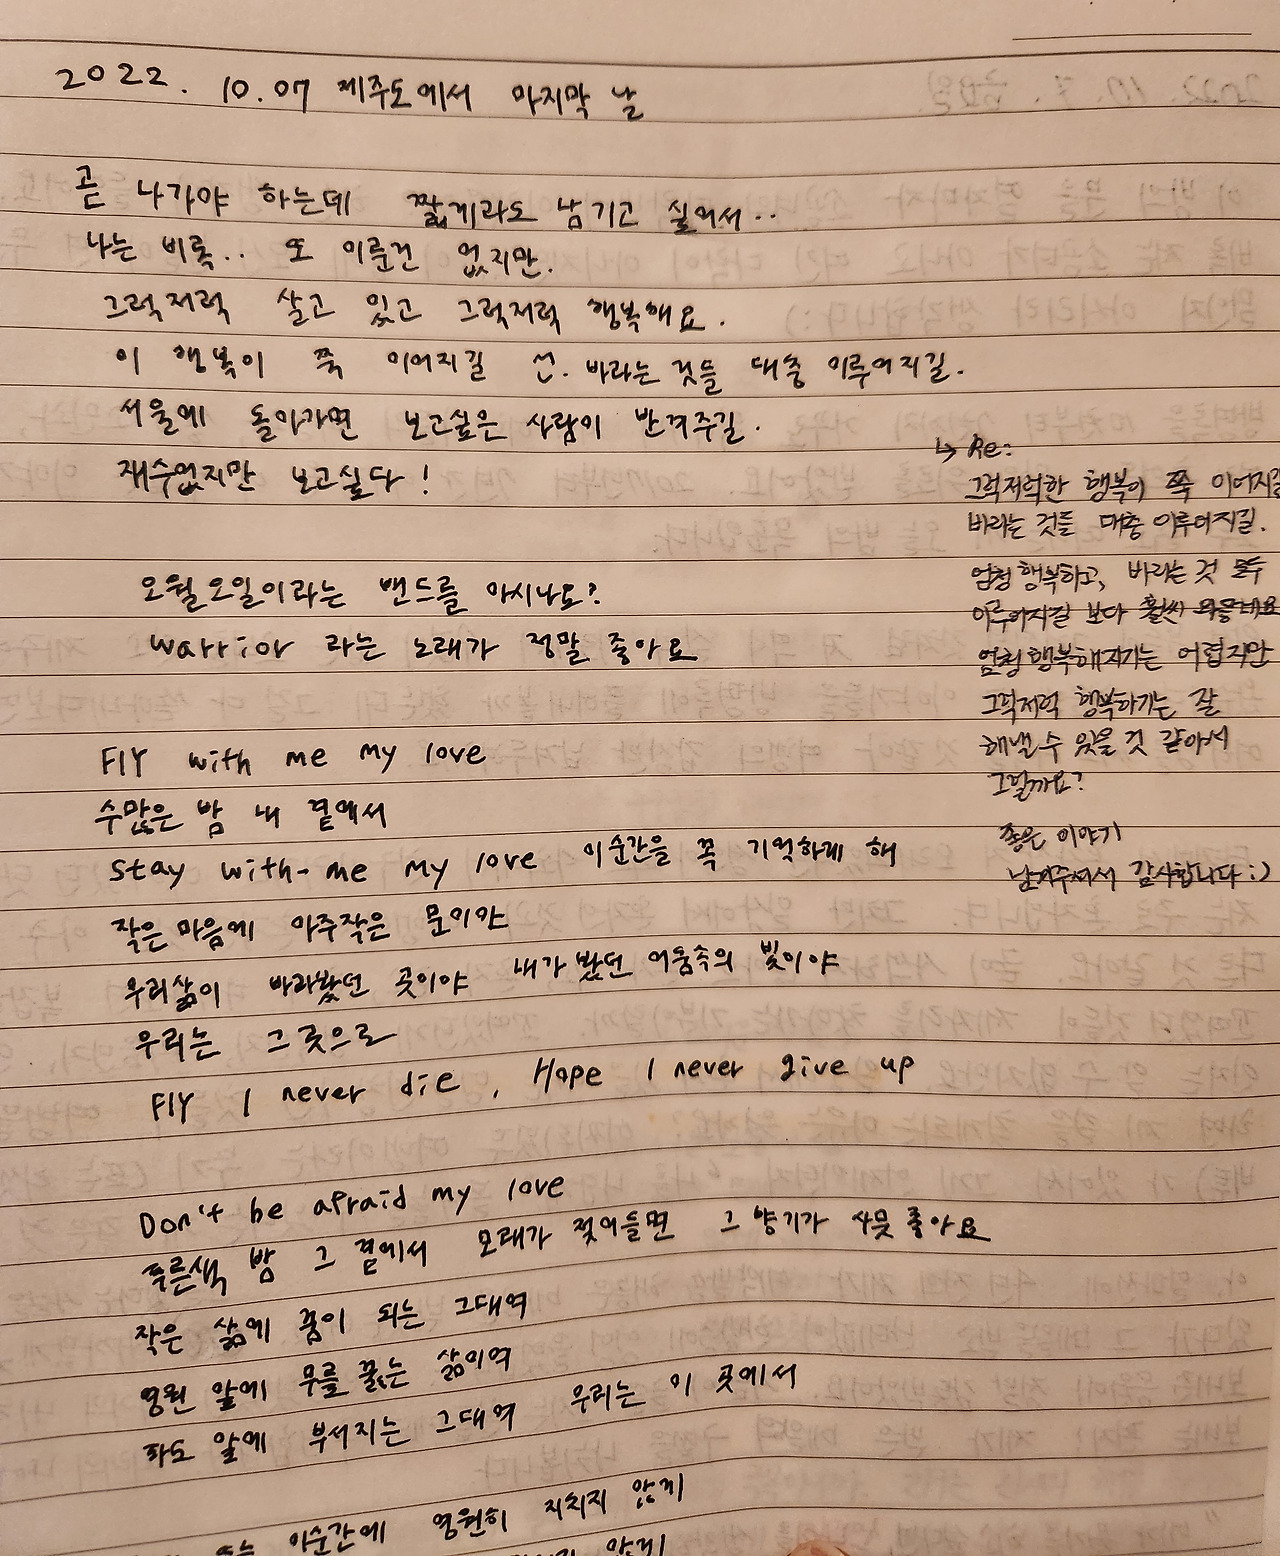 2022. 10.07 제주도에서 마지막 날
곧 나가야 하는데 짧게라도 남기고 싶어서..
나는 비록.. 또 이룬건 없지만.
그럭저럭 살고 있고 그럭저럭 행복해요.
이 행복이 쭉 이어지길 선. 바라는 것들 대충 이루어지길.
서울에 돌아가면 보고싶은 사람이 반겨주길.
재수없지만 보고싶다!
오월오일이라는 밴드를 아시나요?
warrior 라는 노래가 정말 좋아요
Fly with me my love
수많은 밤 내 곁에서
stay with me my love 이순간을 꼭 기억하게 해
작은 마음에 아주작은 문이야
우리삶이 바라봤던 곳이야 내가 봤던 어둠속의 빛이야
우리는 그 곳으로
Fly I never die, Hope I never give up
Don't be afraid my love
푸른색 밤 그 곁에서 노래가 젖어들면 그 향기가 사뭇 좋아요
작은 삶에 춤이 되는 그대여
영원 앞에 무릎 꿇는 삶이여
파도 앞에 부서지는 그대여 우리는 이 곳에서
이순간에 영원히 지치지 않게
않게
↳ Re:
그럭저럭한 행복이 쭉 이어지길
바라는 것들 대충 이루어지길.
엄청 행복하고, 바라는 것 모두
이루어지길 보다 훨씬 와닿네요
엄청 행복해지기는 어렵지만
그럭저럭 행복하기는 잘
해낼 수 있을 것 같아서
그럴까요?
좋은 이야기
남겨주셔서 감사합니다 :)